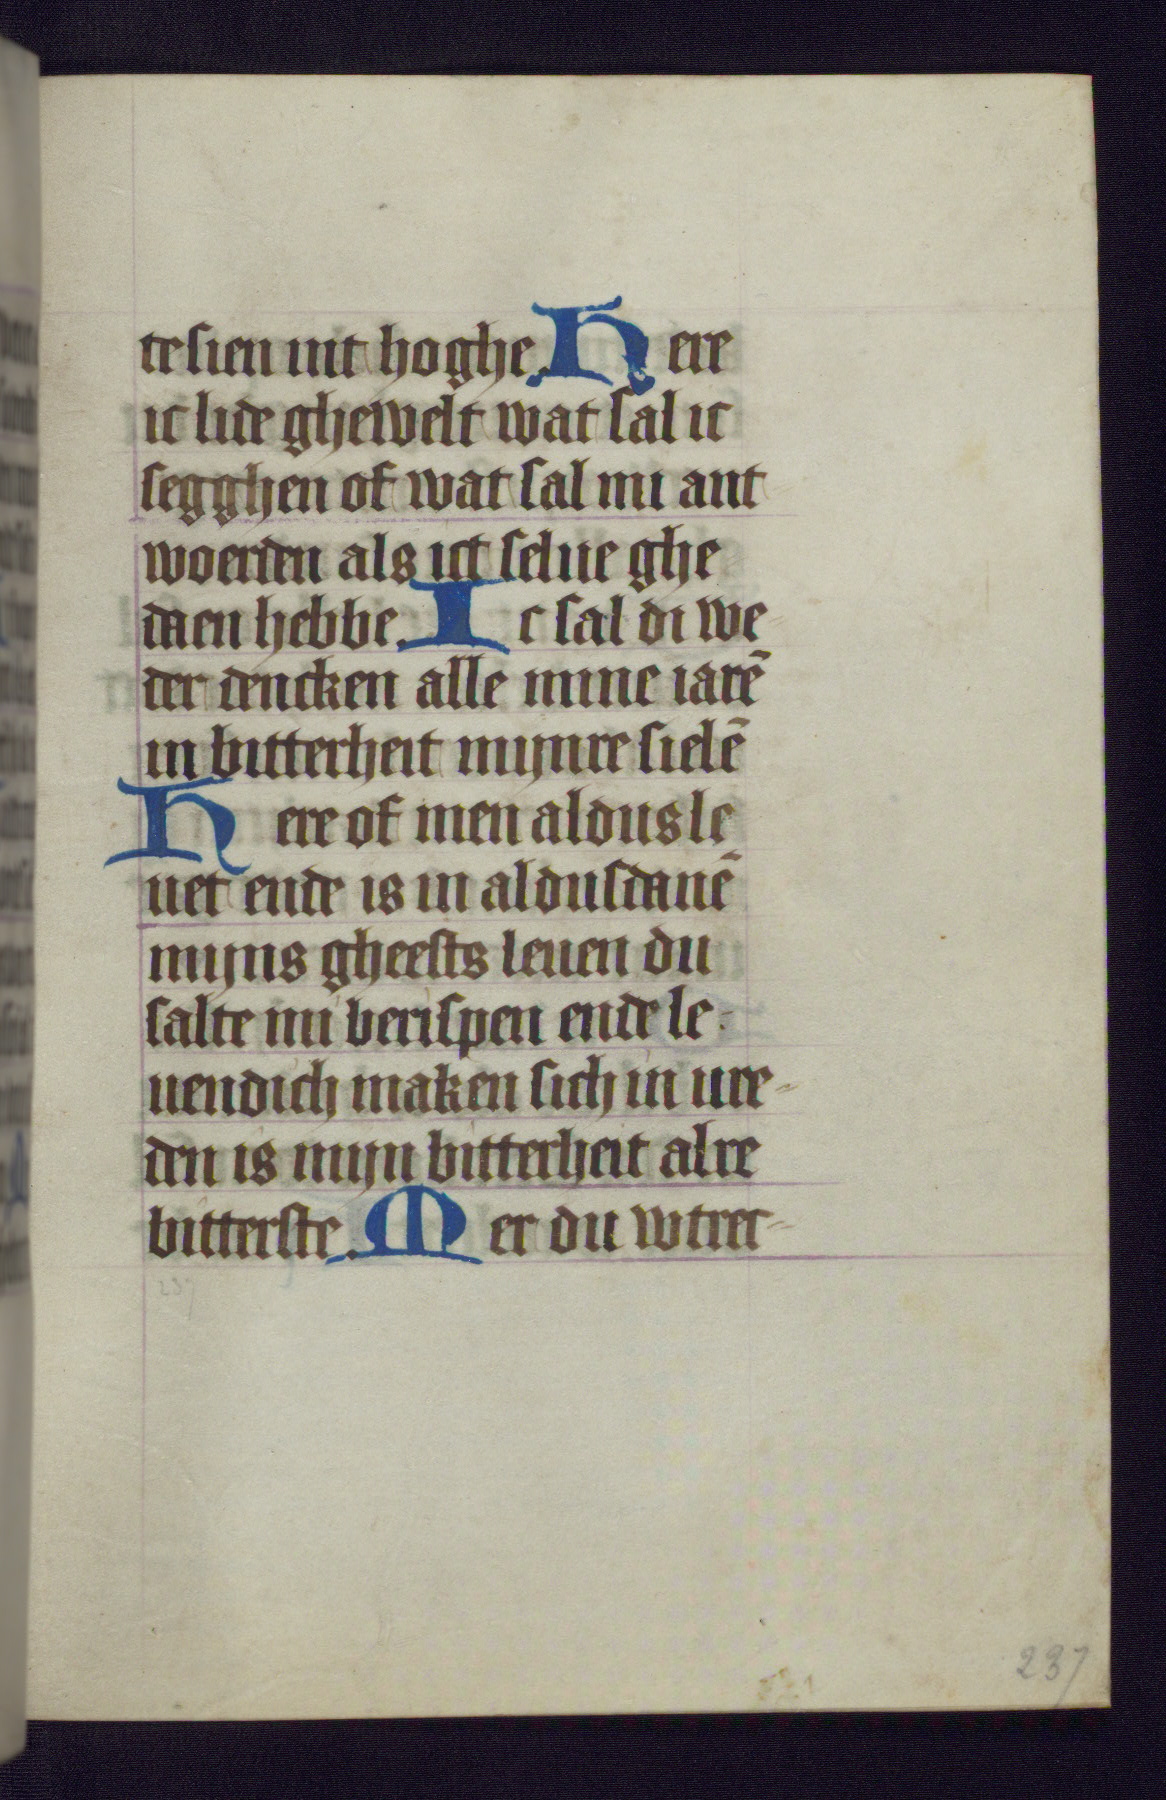 te sien int hoghe. Here
ic lide ghewelt wat sal ic
segghen of wat sal mi ant
woerden als ict selue ghe
daen hebbe. Ic sal di we-
der dencken alle mine iarē
in bitterheit mijnre sielē
Here of men aldus le
uet ende is in aldusdanē
mijns gheests leuen du
salte mi berispen ende le-
uendich maken sich in vre-
den is mijn bitterheit alre
bitterste. Mer du wtrec-
237
237